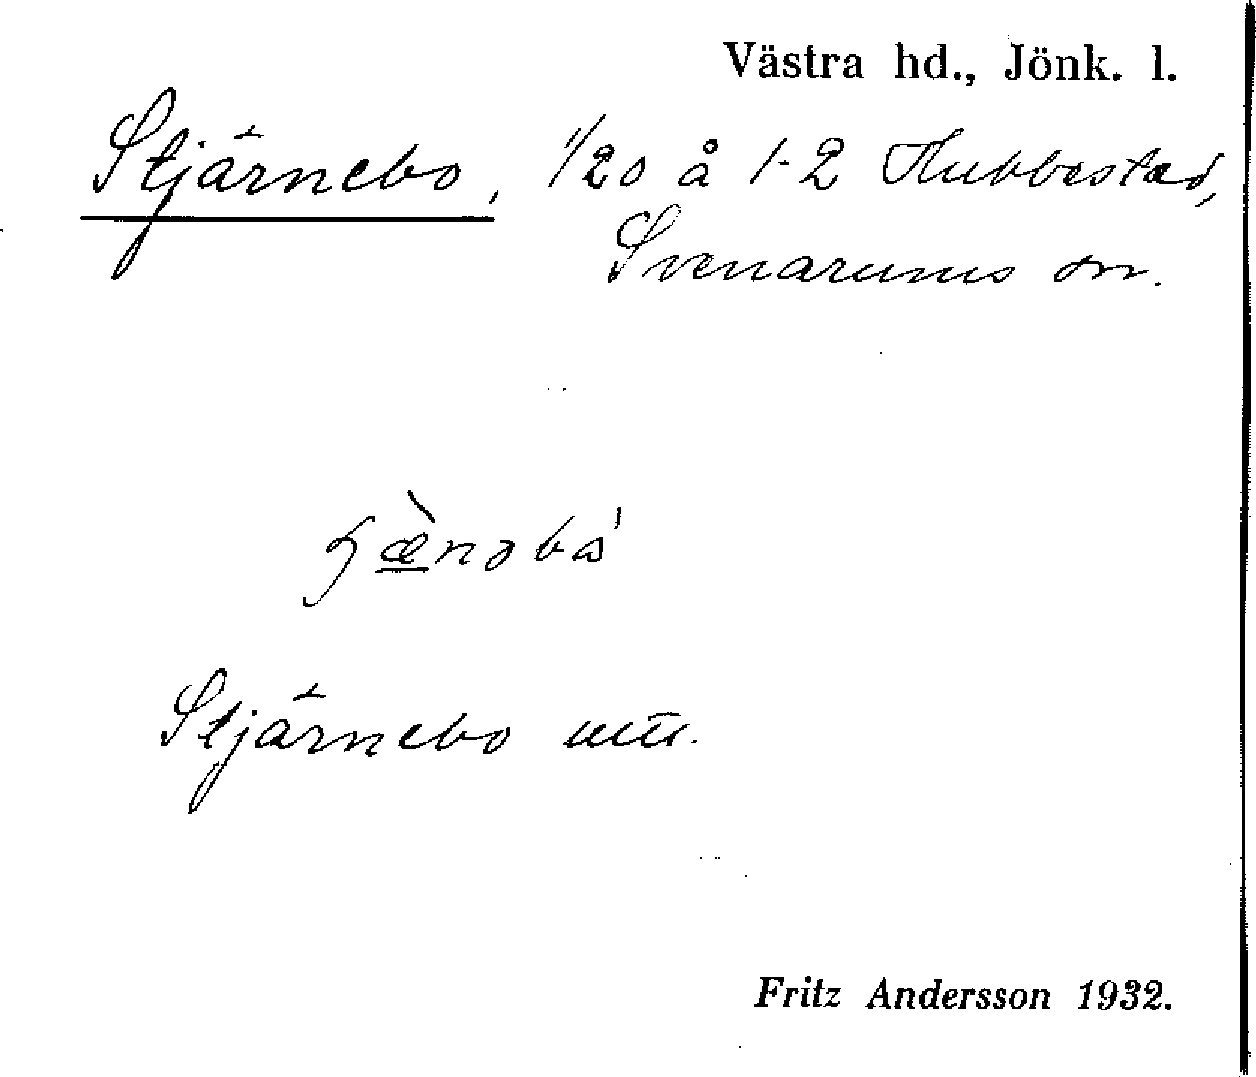 Västra hd., Jönk. l.
Stjärnebo, 1/20 å 1-2 Hubbestad,
Svenarums sn.
Stjärnebo
Fritz Andersson 1932.